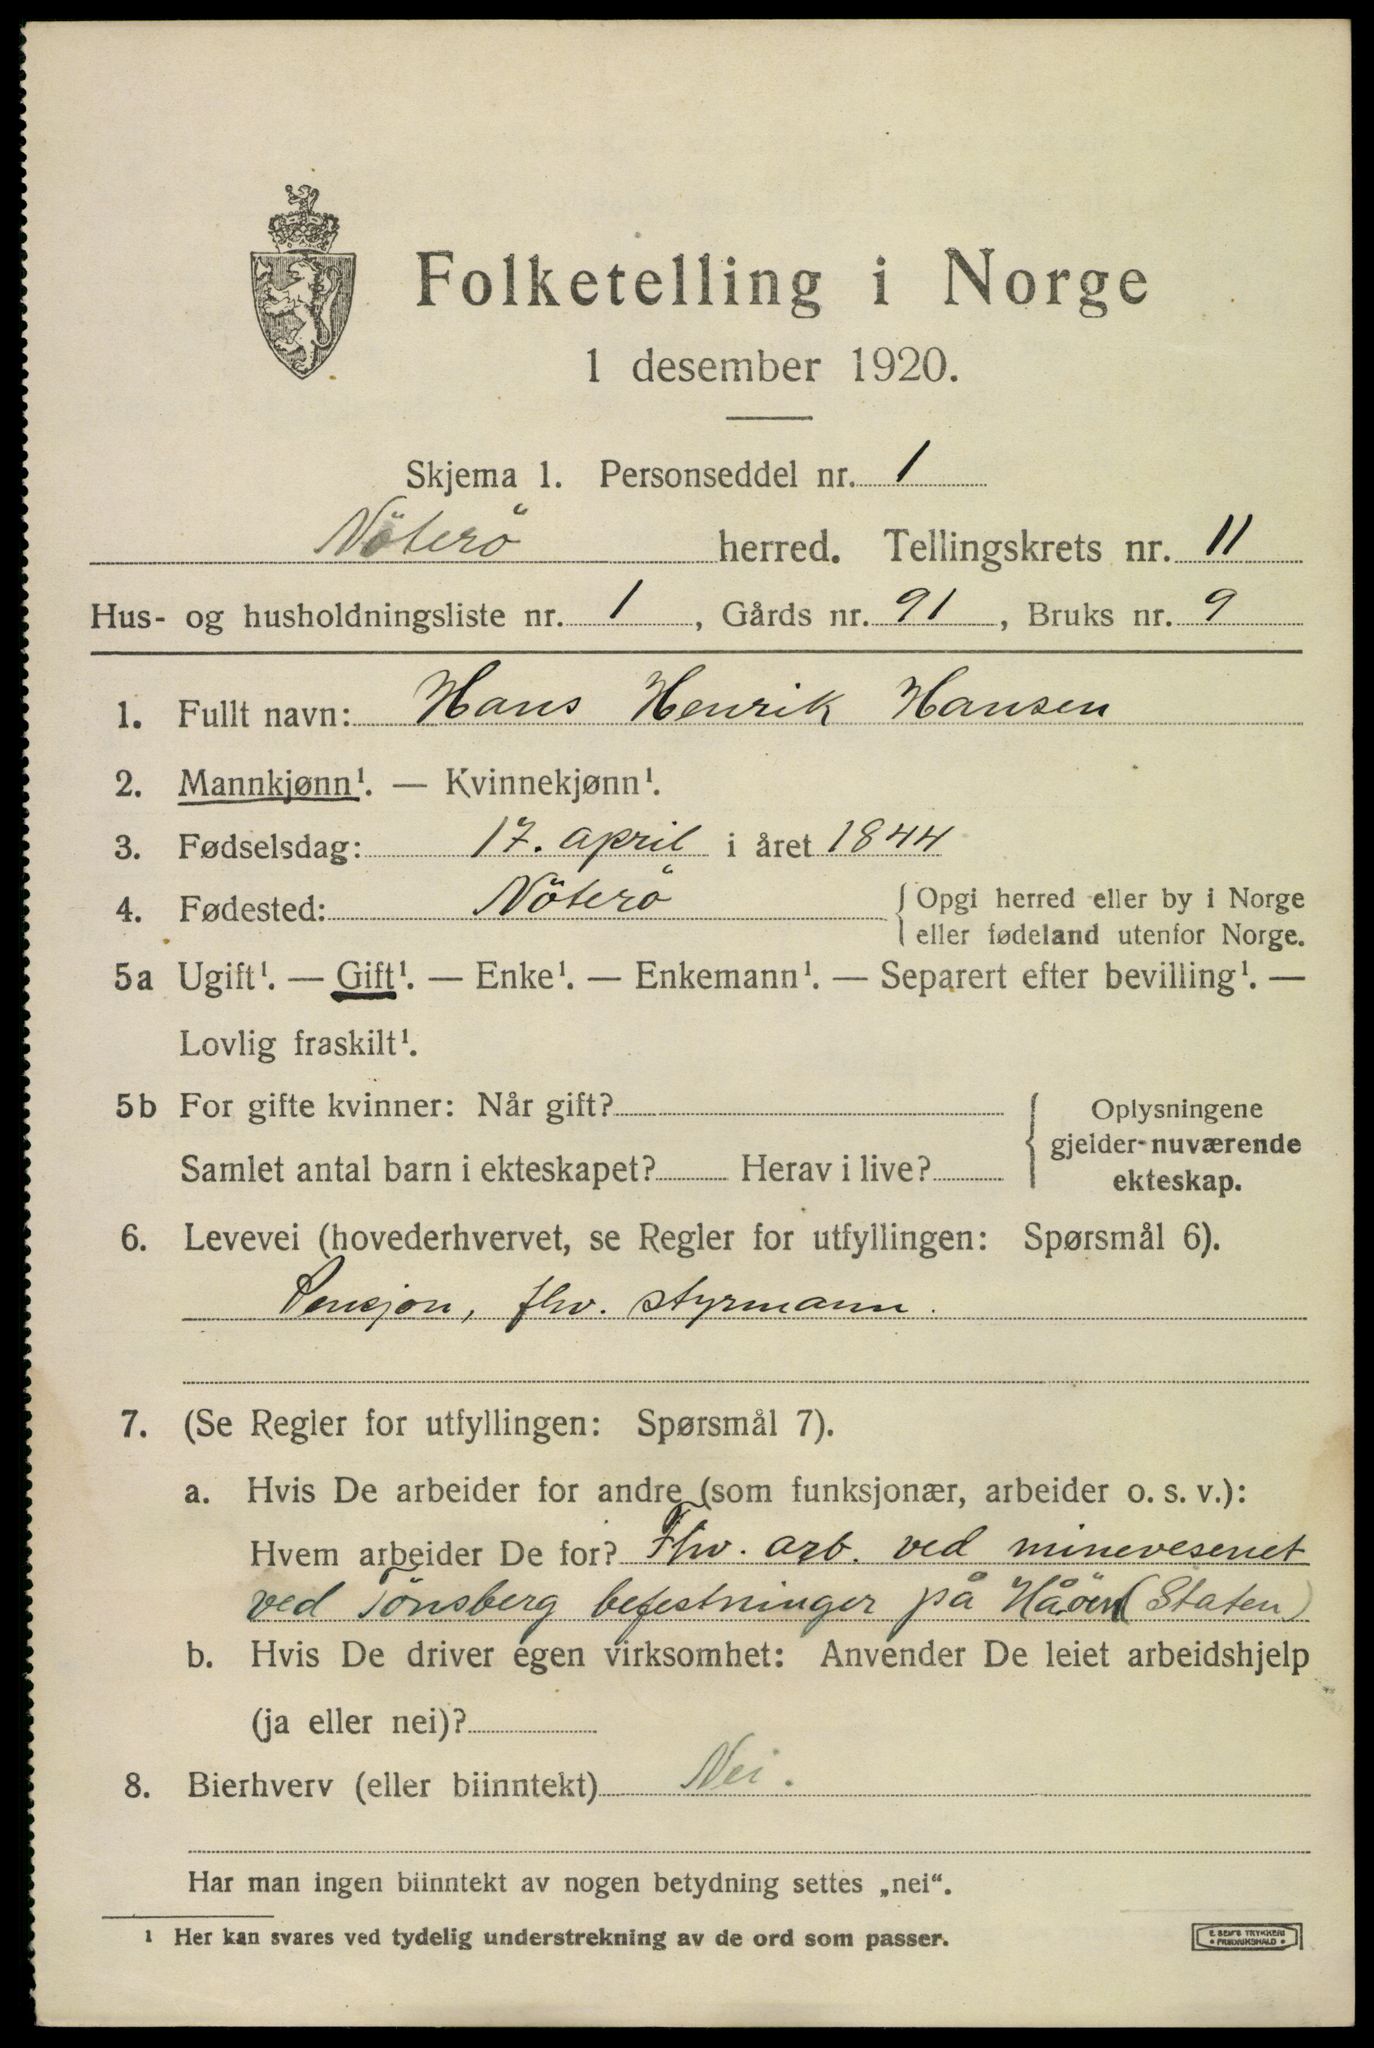 Folketelling i Norge
1 desember 1920.
Skjema 1. Personseddel nr. 1
Nöterö herred. Tellingskrets nr. 11
Hus- og husholdningsliste nr. 1, Gårds nr. 91, Bruks nr. 9
1. Fullt navn: Hans Henrik Hansen
2. Mannkjønn¹. — Kvinnekjønn¹.
3. Fødselsdag: 17. april i året 1844
4. Fødested: Nöterö { Opgi herred eller by i Norge
eller fødeland utenfor Norge.
5a Ugift¹. — Gift¹. — Enke¹. — Enkemann¹. — Separert efter bevilling¹. —
Lovlig fraskilt¹.
5b For gifte kvinner: Når gift? { Oplysningene
gjelder nuværende
Samlet antal barn i ekteskapet? Herav i live? ekteskap.
6. Levevei (hovederhvervet, se Regler for utfyllingen: Spørsmål 6).
Pensjon, fhv. styrmann.
7. (Se Regler for utfyllingen: Spørsmål 7).
a. Hvis De arbeider for andre (som funksjonær, arbeider o. s. v.):
Hvem arbeider De for? Fhv. arb. ved minevesenet
ved Tönsberg befestninger på Håöen (Staten)
b. Hvis De driver egen virksomhet: Anvender De leiet arbeidshjelp
(ja eller nei)?
8. Bierhverv (eller biinntekt) Nei.
Har man ingen biinntekt av nogen betydning settes „nei“.
¹ Her kan svares ved tydelig understrekning av de ord som passer.
E. SEM'S TRYKKERI
• FREDRIKSHALD •